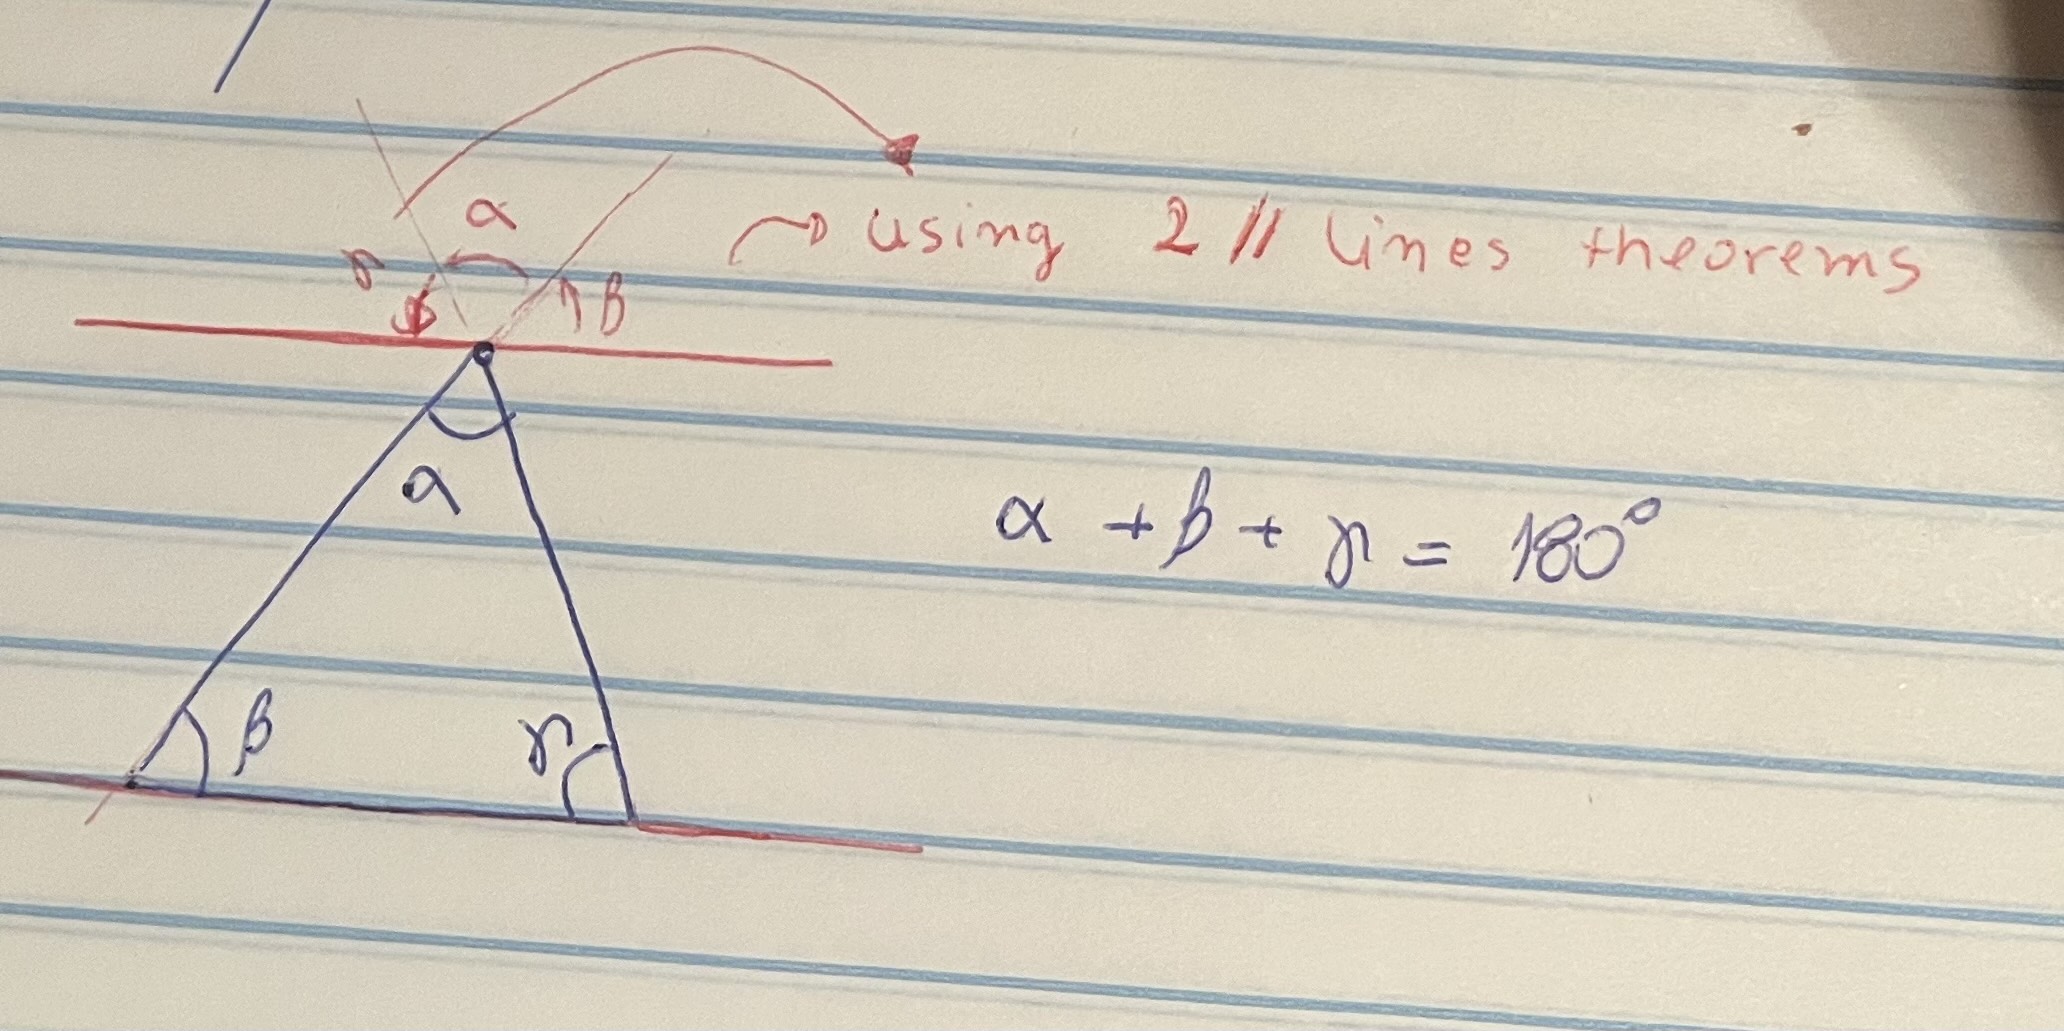 α
γ
β
using 2 // lines theorems
α
α + β + γ = 180°
β
γ